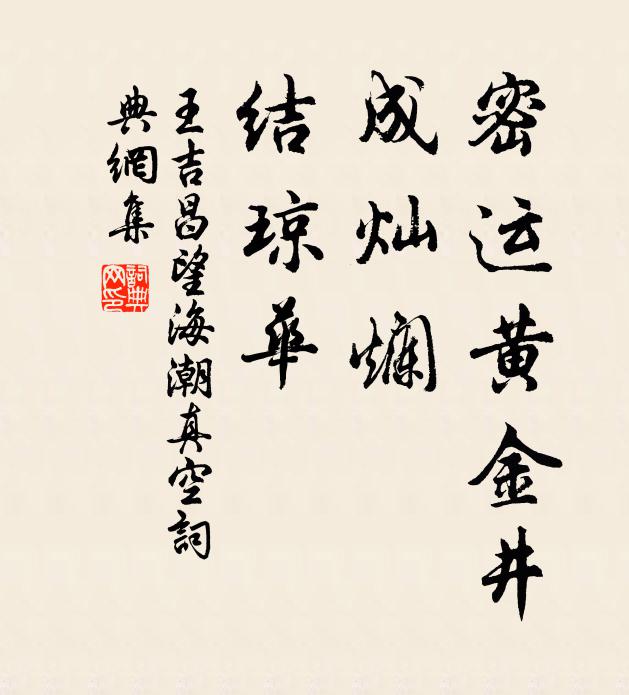 密运黄金井
成灿斓
结琼華
王吉昌望海潮真空詞
典網集
詞典网印